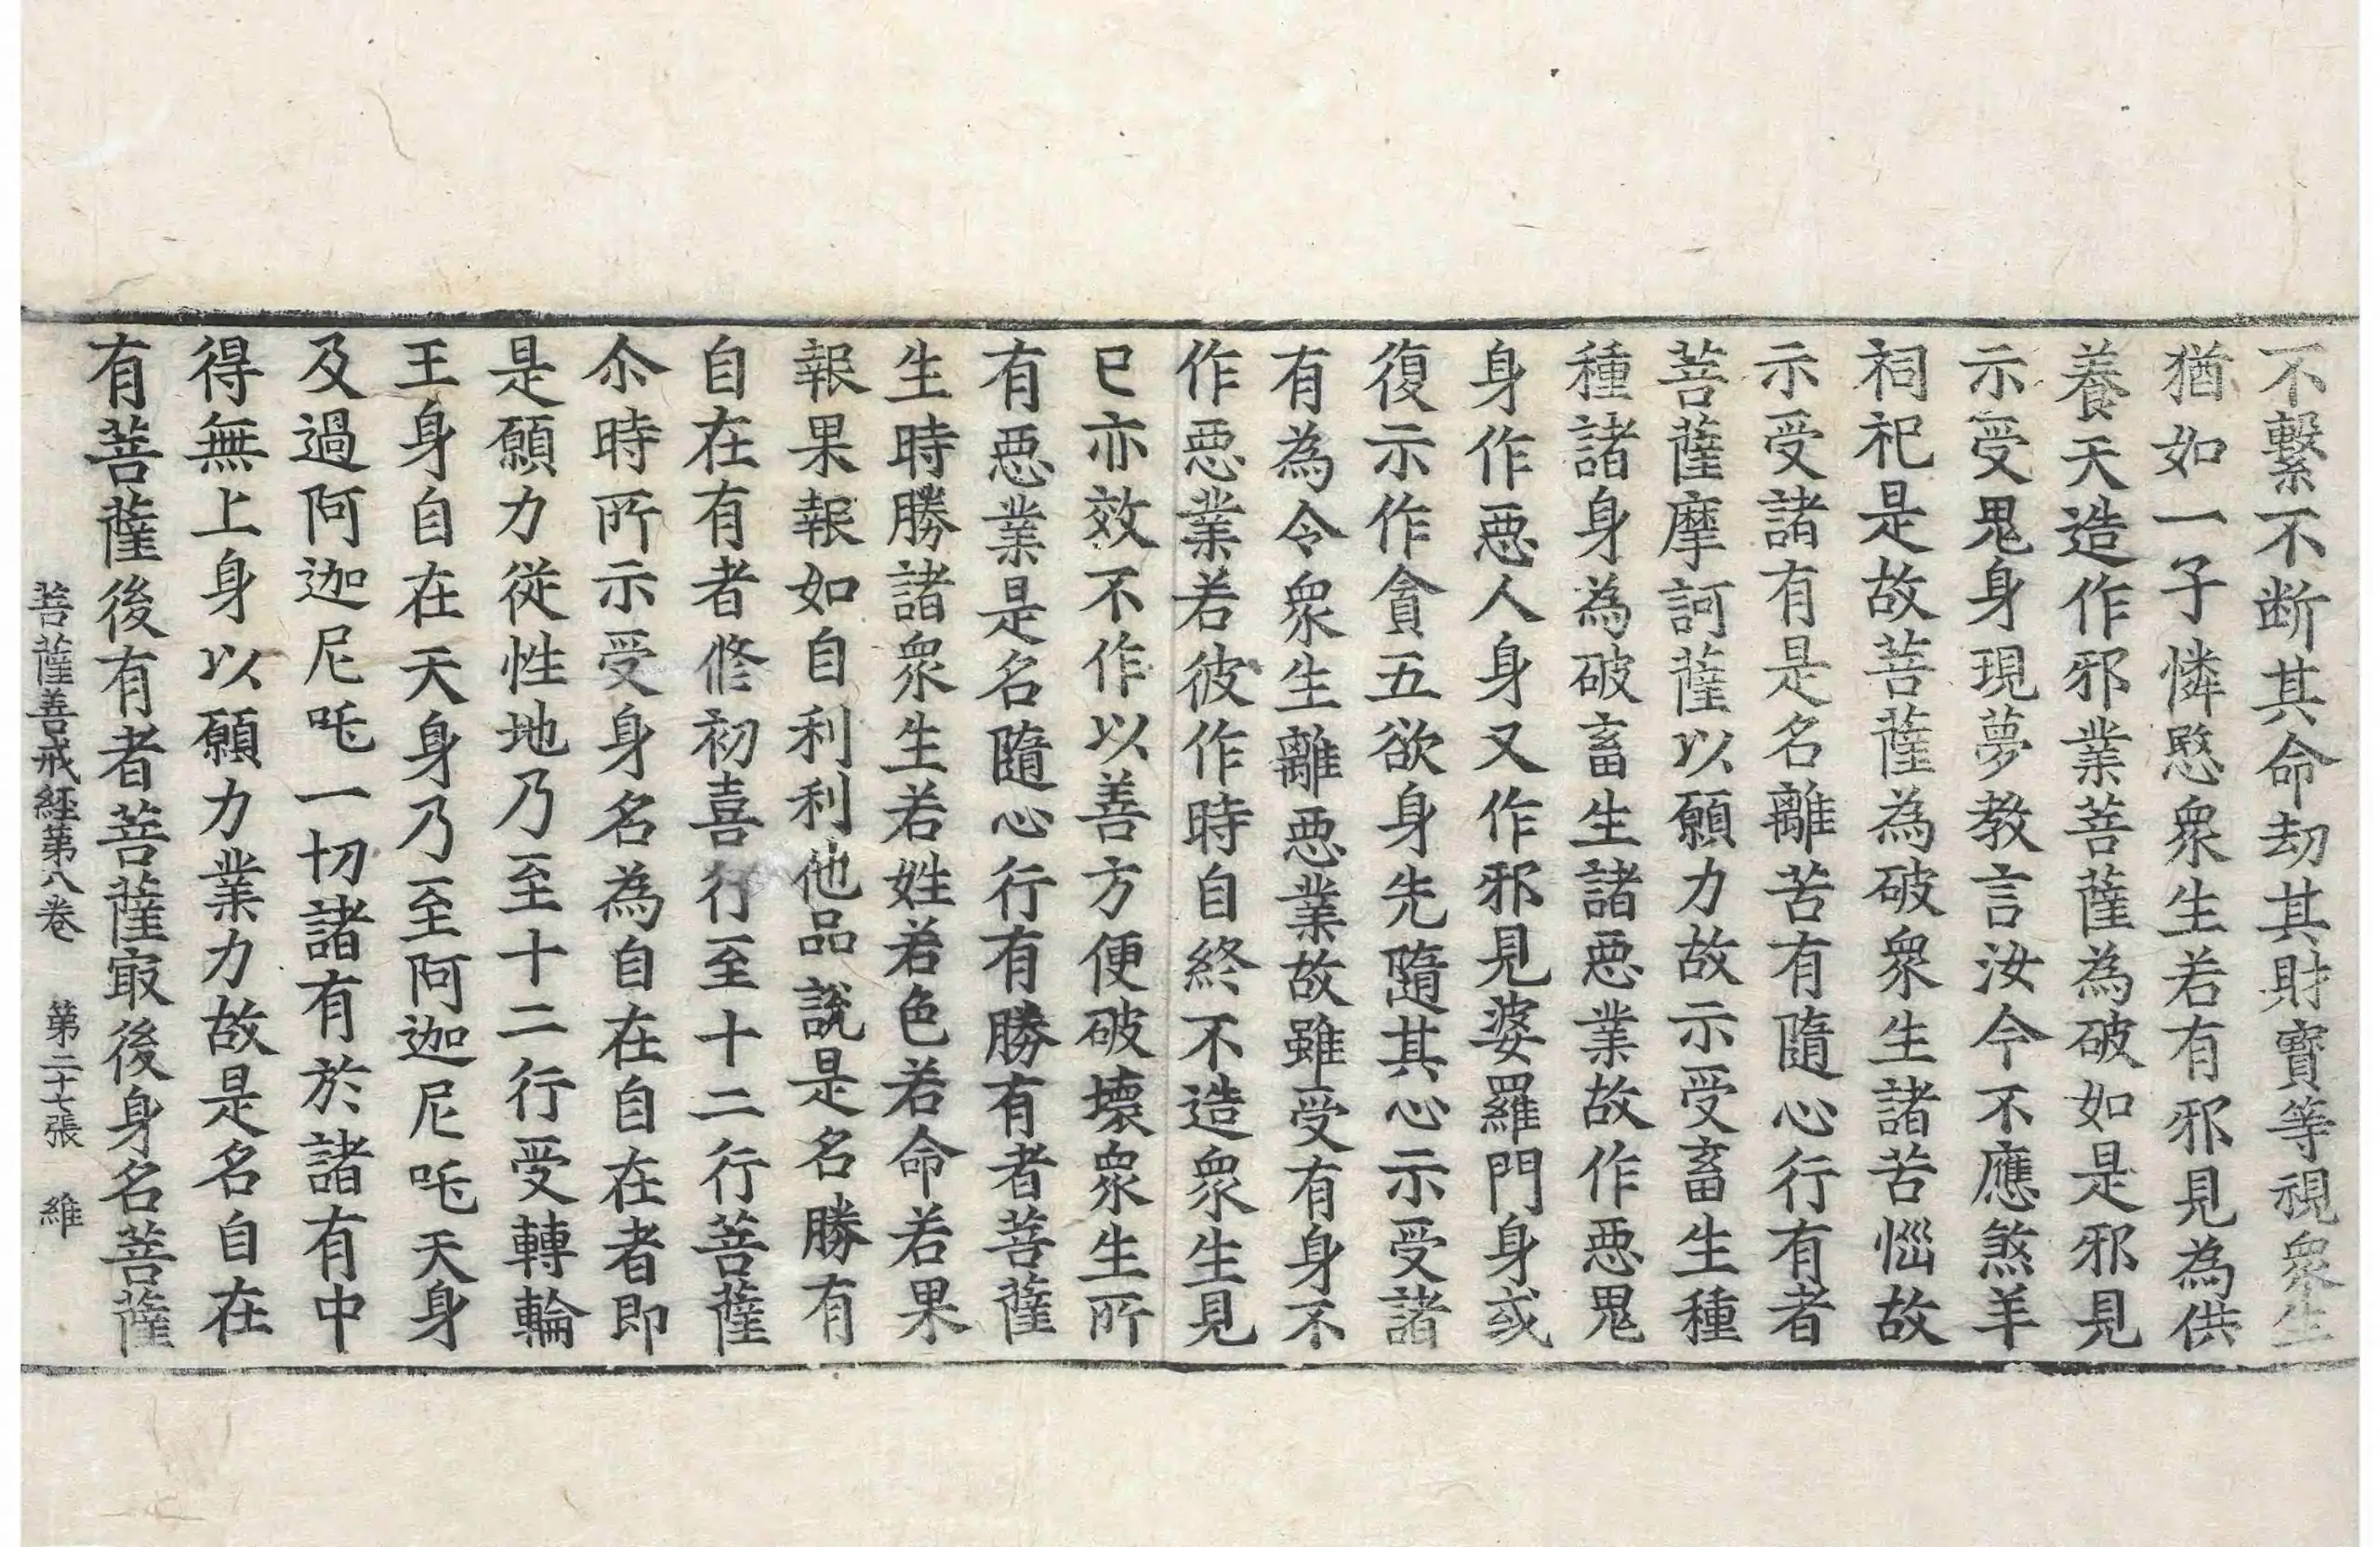 不繫不断其命劫其財寶等視衆生
猶如一子憐愍衆生若有邪見為供
養天造作邪業菩薩為破如是邪見
示受鬼身現夢教言汝今不應煞羊
祠祀是故菩薩為破衆生諸苦惱故
示受諸有是名離苦有隨心行有者
菩薩摩訶薩以願力故示受畜生種
種諸身為破畜生諸惡業故作惡鬼
身作惡人身又作邪見婆羅門身或
復示作貪五欲身先隨其心示受諸
有為令衆生離惡業故雖受有身不
作惡業若彼作時自終不造衆生見
已亦效不作以善方便破壞衆生所
有惡業是名隨心行有勝有者菩薩
生時勝諸衆生若姓若色若命若果
報果報如自利利他品說是名勝有
自在有者修初喜行至十二行菩薩
尒時所示受身名為自在自在者即
是願力從性地乃至十二行受轉輪
王身自在天身乃至阿迦尼吒天身
及過阿迦尼吒一切諸有於諸有中
得無上身以願力業力故是名自在
有菩薩後有者菩薩冣後身名菩薩
菩薩善戒經第八卷 第二十七張 維